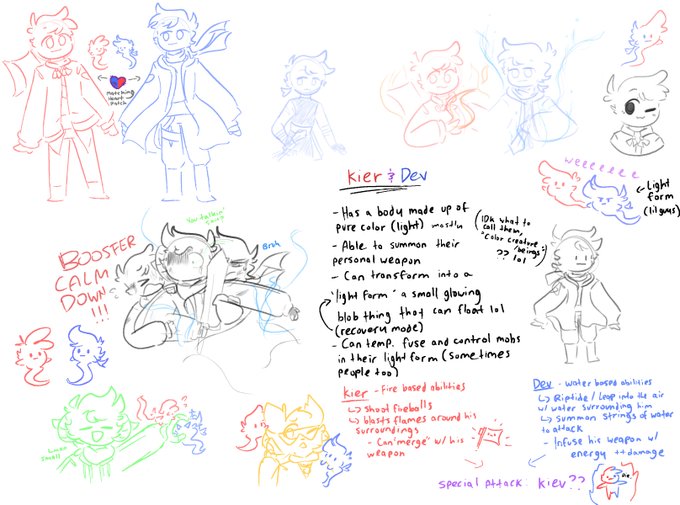 Matching
Heart
Patch
Kier & Dev
weeeeeee
Light
form
(lil guys)
- Has a body made up of
pure color (light) mostly
(IDK what to
call them,
"color creature"
"beings"
?? lol
- Able to summon their
personal weapon
- Can transform into a
"light form" a small glowing
blob thing that can float lol
(recovery mode)
- Can temp. fuse and control mobs
in their light form (sometimes
people too)
BOOSTER
CALM
DOWN
!!!
Bruh
Kier - Fire based abilities
↳ shoot fireballs
↳ blasts flames around his
surroundings
- Can "merge" w/ his
weapon
Dev - water based abilities
↳ Riptide / Leap into the air
w/ water surrounding him
↳ summon strings of water
to attack
- Infuse his weapon w/
energy ++damage
special attack: kiev??